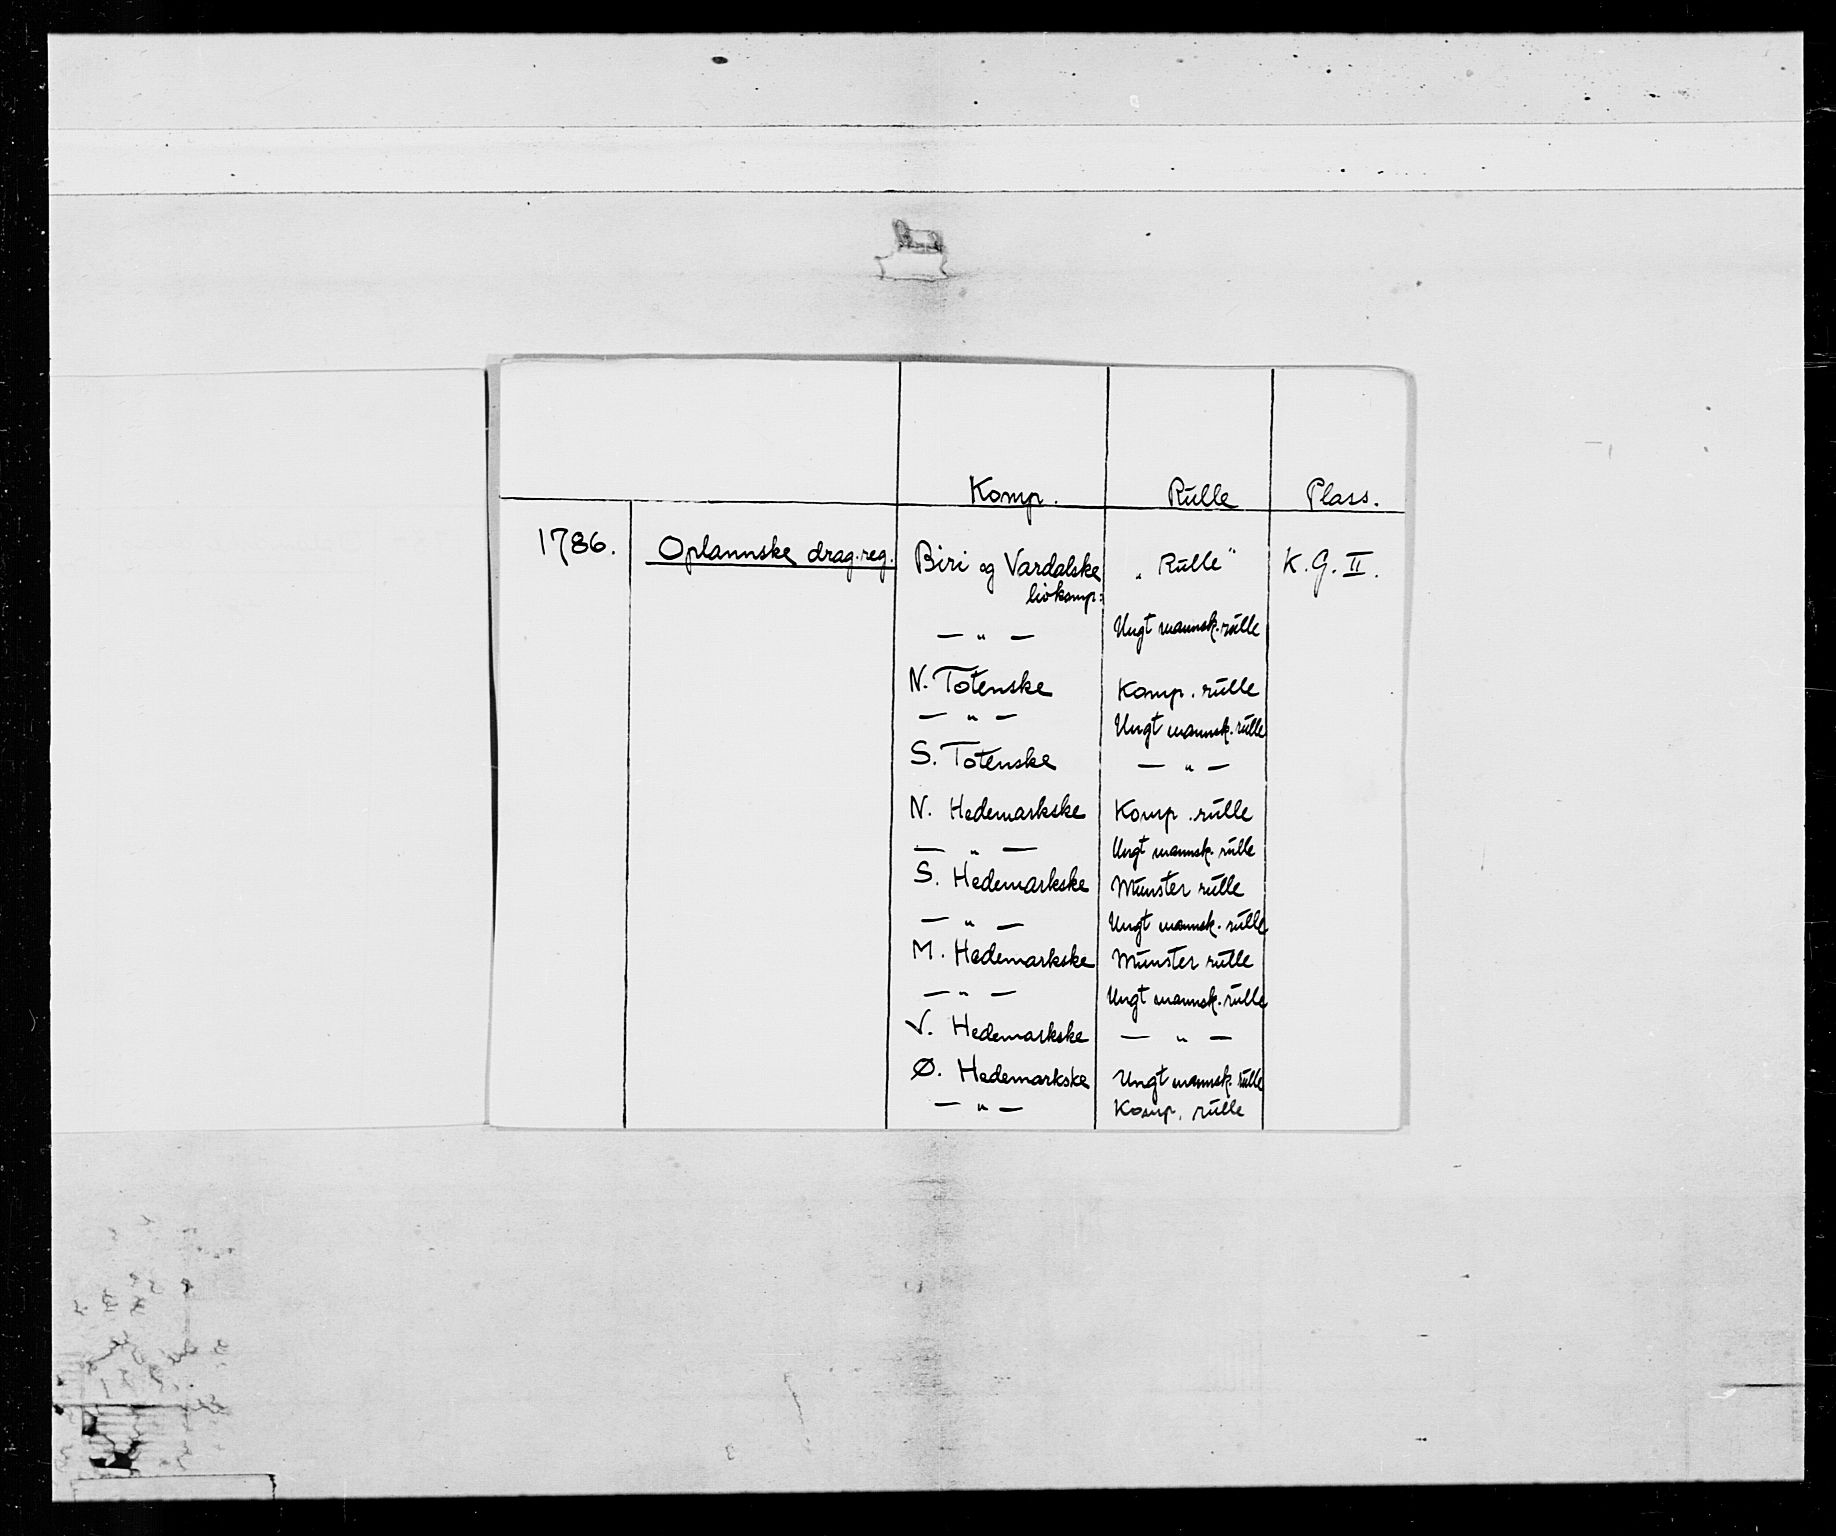 Komp. Rulle Plass.
1786. Oplannske drag.reg. Biri og Vardalske „Rulle" K.G. II.
livkomp:
— „ — Ungt mannsk. rulle
N. Totenske Komp. rulle
— „ — Ungt mannsk. rulle
S. Totenske — „ —
N. Hedemarkske Komp. rulle
— „ — Ungt mannsk. rulle
S. Hedemarkske Munster rulle
— „ — Ungt mannsk. rulle
M. Hedemarkske Munster rulle
— „ — Ungt mannsk. rulle
V. Hedemarkske — „ —
Ø. Hedemarkske Ungt mannsk. rulle
— „ — Komp. rulle